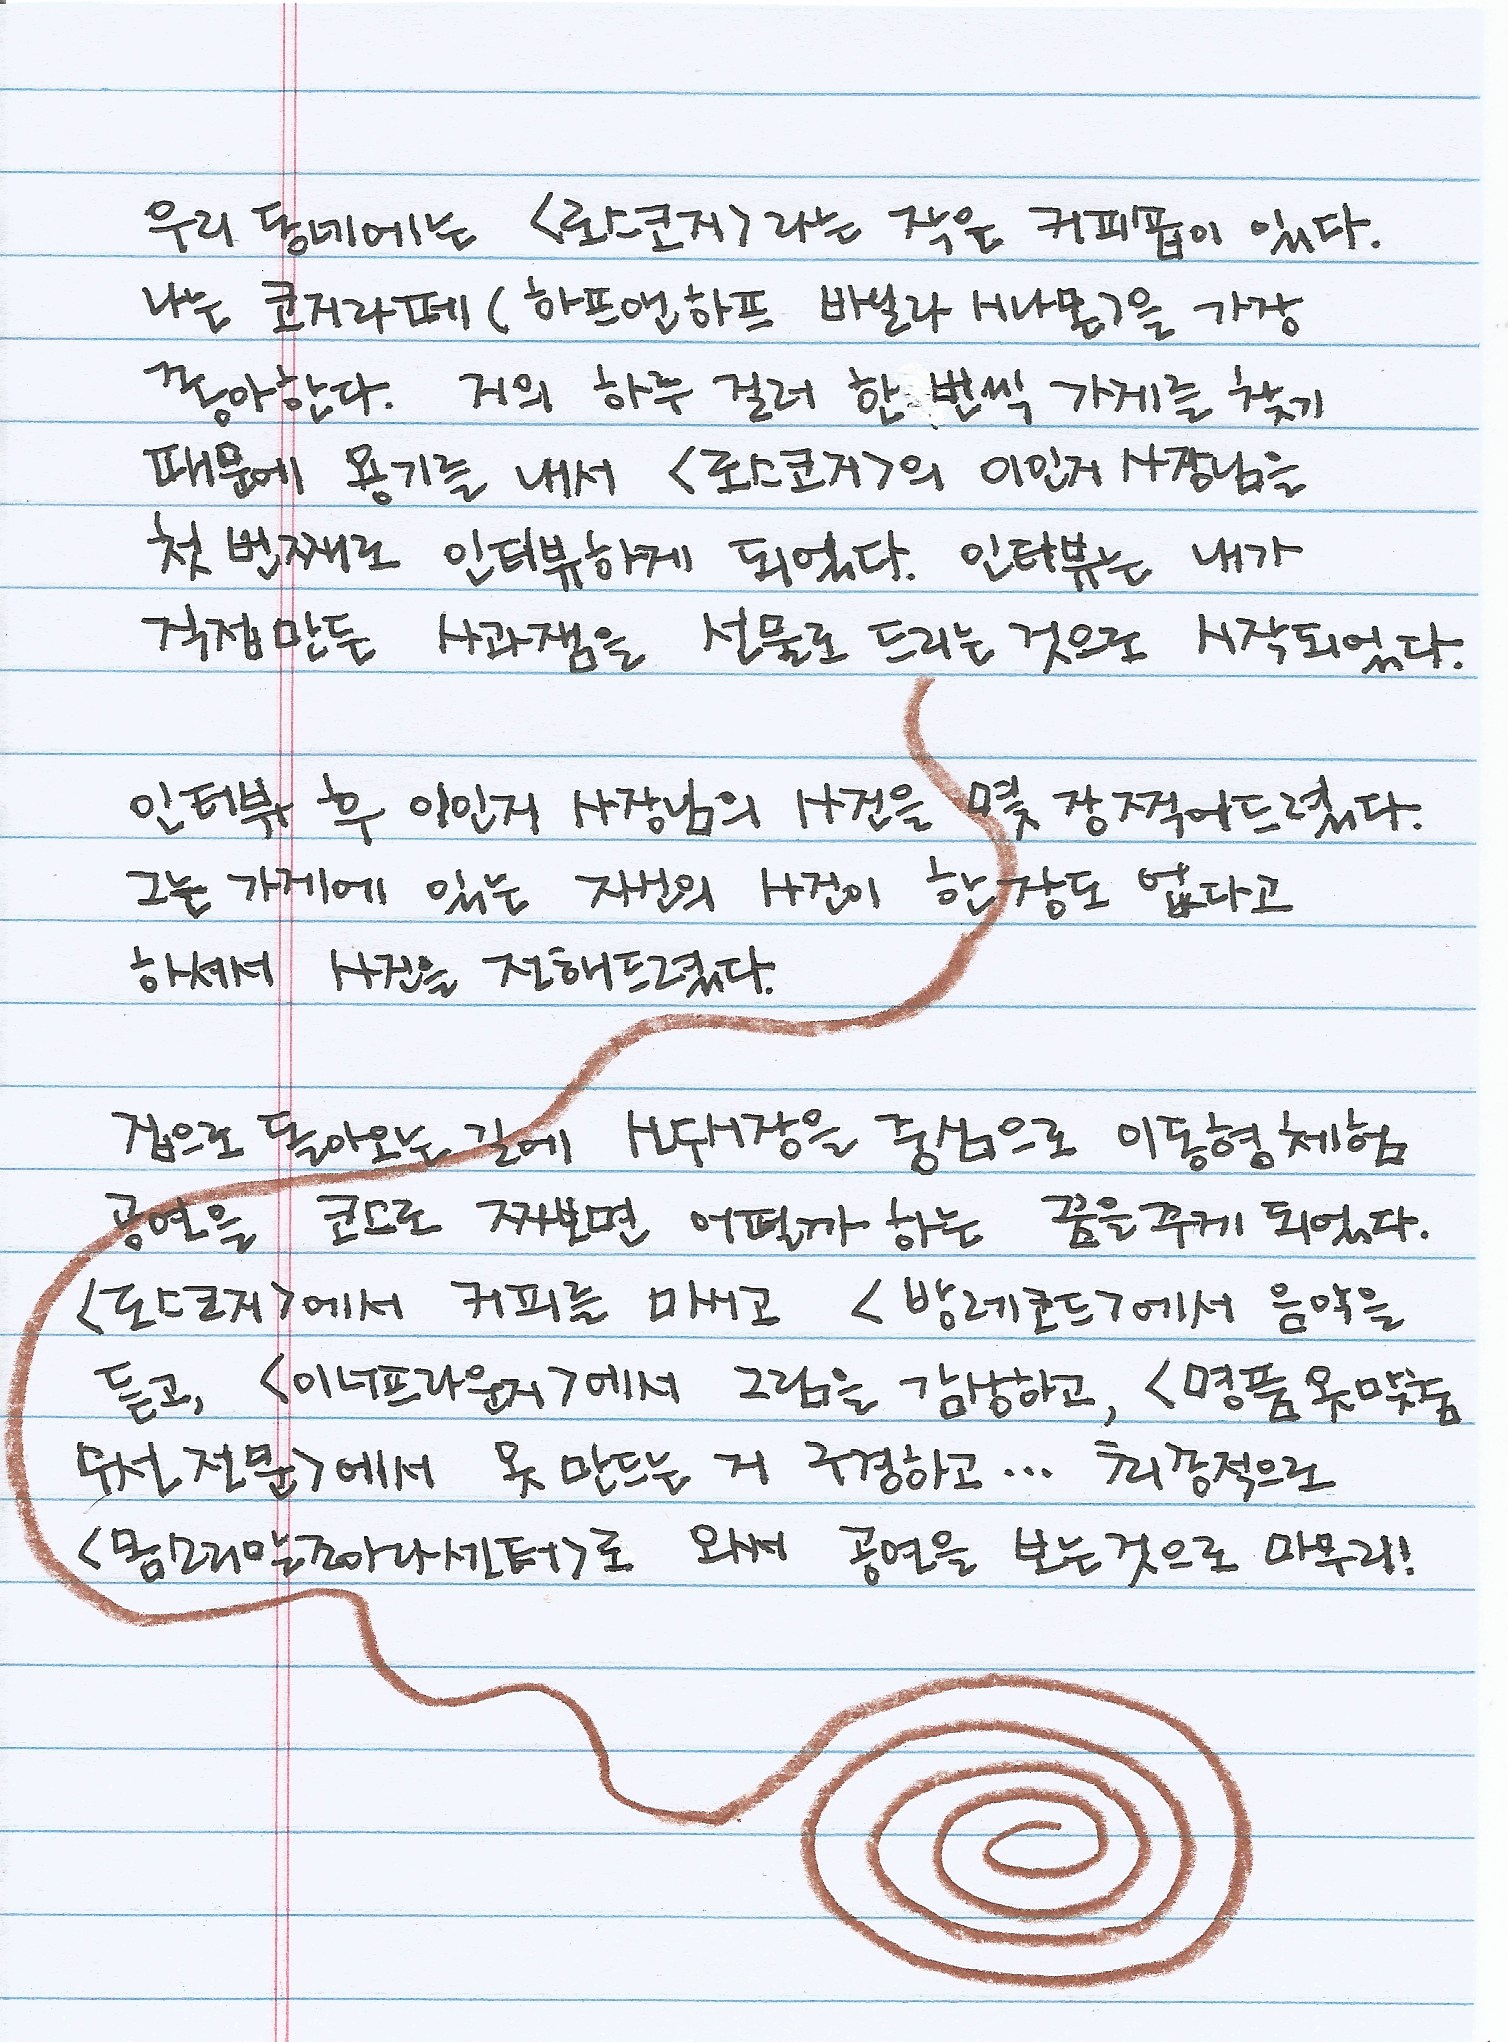 우리 동네에는 <로스코지>라는 작은 커피숍이 있다.
나는 코지라떼(하프앤하프 바닐라 시나몬)을 가장
좋아한다. 거의 하루 걸러 한 번씩 가게를 찾기
때문에 용기를 내서 <로스코지>의 이인지 사장님을
첫 번째로 인터뷰하게 되었다. 인터뷰는 내가
직접 만든 사과잼을 선물로 드리는 것으로 시작되었다.
인터뷰 후 이인지 사장님의 사진을 몇 장 찍어드렸다.
그는 가게에 있는 자신의 사진이 한 장도 없다고
하셔서 사진을 전해드렸다.
집으로 돌아오는 길에 신시장을 중심으로 이동형체험
공연을 코스로 짜보면 어떨까 하는 꿈을 꾸게 되었다.
<로스코지>에서 커피를 마시고 <방레코드>에서 음악을
듣고, <이너프라운지>에서 그림을 감상하고, <명품옷맞춤
수선전문>에서 옷 만드는 거 구경하고... 최종적으로
<몸소리말조아라센터>로 와서 공연을 보는것으로 마무리!